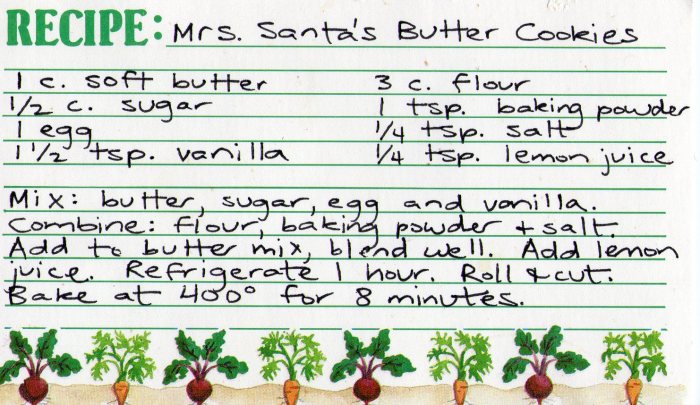 RECIPE: Mrs. Santa's Butter Cookies
1 c. soft butter
1/2 c. sugar
1 egg
1 1/2 tsp. vanilla
3 c. flour
1 tsp. baking powder
1/4 tsp. salt
1/4 tsp. lemon juice
Mix: butter, sugar, egg and vanilla.
Combine: flour, baking powder + salt.
Add to butter mix, blend well. Add lemon
juice. Refrigerate 1 hour. Roll & cut.
Bake at 400° for 8 minutes.